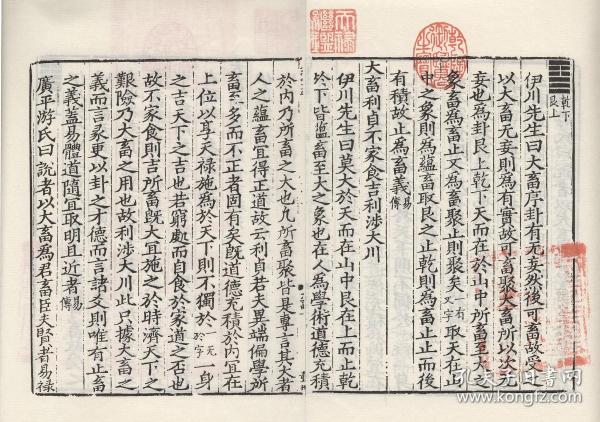 乾下
艮上
伊川先生曰大畜序卦有无妄然後可畜故受之
以大畜无妄則為有實故可畜聚大畜所以次无
妄也為卦艮上乾下天而在於山中所畜至大之
象畜為畜止又為畜聚止則聚矣一有又字取天在山
中之象則為蘊畜取艮之止乾則為畜止止而後
有積故止為畜義易傳
大畜利貞不家食吉利涉大川
伊川先生曰莫大於天而在山中艮在上而止乾
於下皆蘊畜至大之象也在人為學術道德充積
於內乃所畜之大也凡所畜聚皆是專言其大者
人之蘊畜宜得正道故云利貞若夫異端偏學所
畜至多而不正者固有矣旣道德充積於內宜在
上位以享天祿施為於天下則不獨於一无於字一身
之吉天下之吉也若窮處而自食於家道之否也
故不家食則吉所畜旣大宜施之於時濟天下之
艱險乃大畜之用也故利涉大川此只據大畜之
義而言彖更以卦之才德而言諸爻則唯有止畜
之義蓋易體道隨宜取明且近者易傳
廣平游氏曰說者以大畜為君畜臣夫賢者易祿
孔夫子旧书网
www.kongfz.com